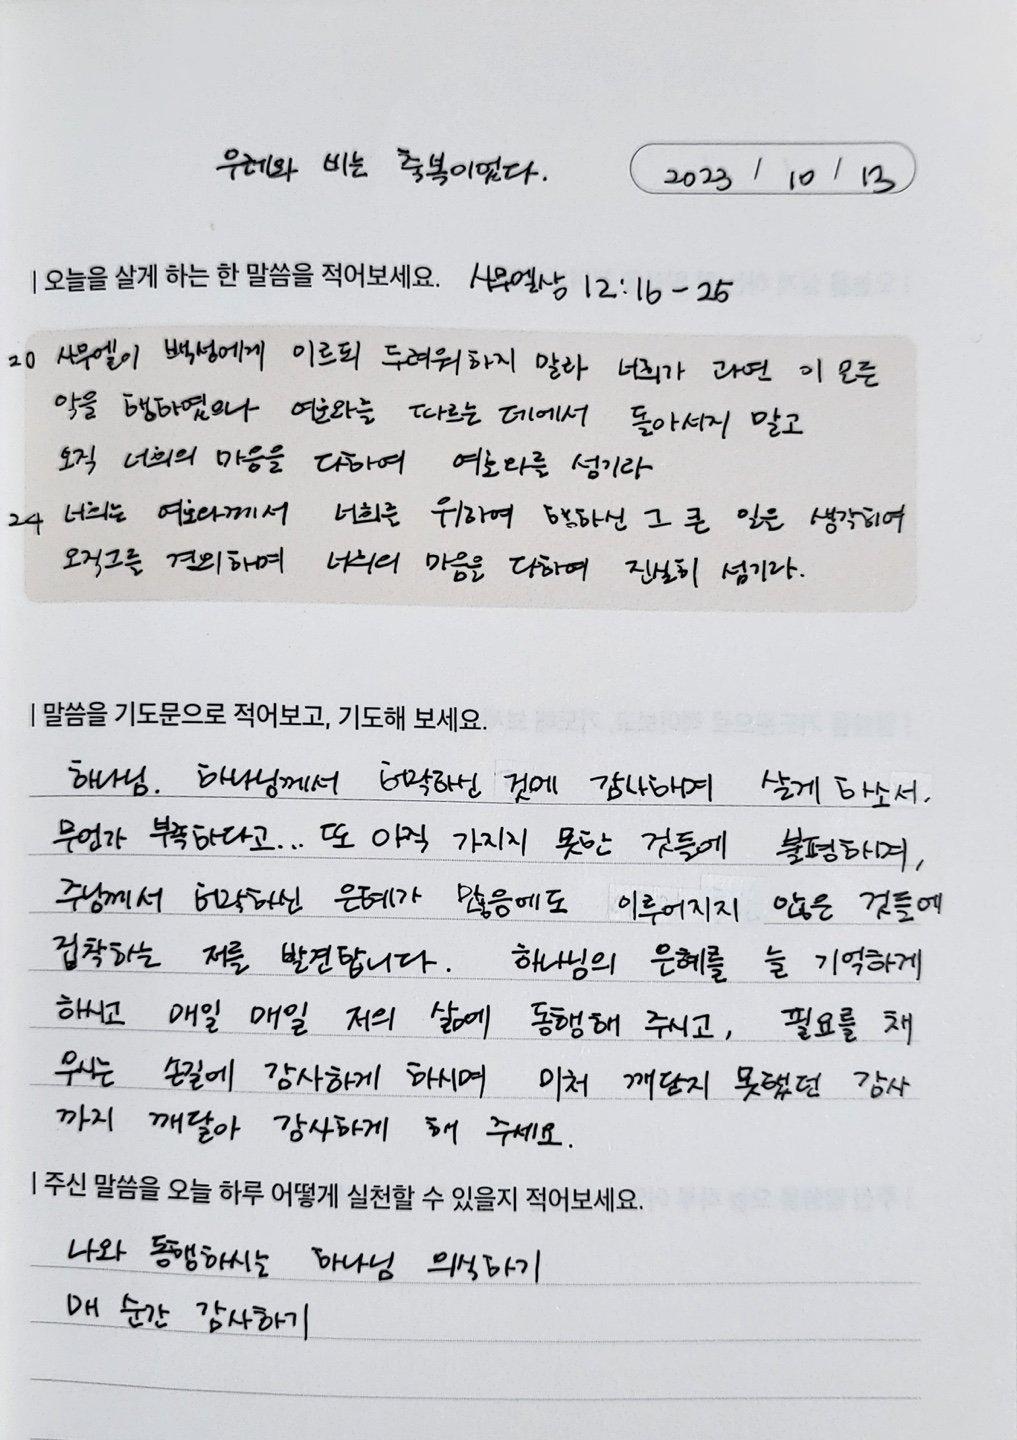 우레와 비는 축복이었다.
2023 / 10 / 13
| 오늘을 살게 하는 한 말씀을 적어보세요. 사무엘상 12:16-25
20 사무엘이 백성에게 이르되 두려워하지 말라 너희가 과연 이 모든
악을 행하였으나 여호와를 따르는 데에서 돌아서지 말고
오직 너희의 마음을 다하여 여호와를 섬기라
24 너희는 여호와께서 너희를 위하여 행하신 그 큰 일을 생각하여
오직그를 경외하며 너희의 마음을 다하여 진실히 섬기라.
| 말씀을 기도문으로 적어보고, 기도해 보세요.
하나님. 하나님께서 허락하신 것에 감사하며 살게 하소서.
무언가 부족하다고... 또 아직 가지지 못한 것들에 불평하며,
주님께서 허락하신 은혜가 많음에도 이루어지지 않은 것들에
집착하는 저를 발견합니다. 하나님의 은혜를 늘 기억하게
하시고 매일 매일 저의 삶에 동행해 주시고, 필요를 채
우시는 손길에 감사하게 하시며 미처 깨닫지 못했던 감사
까지 깨달아 감사하게 해 주세요.
| 주신 말씀을 오늘 하루 어떻게 실천할 수 있을지 적어보세요.
나와 동행하시는 하나님 의식하기
매 순간 감사하기